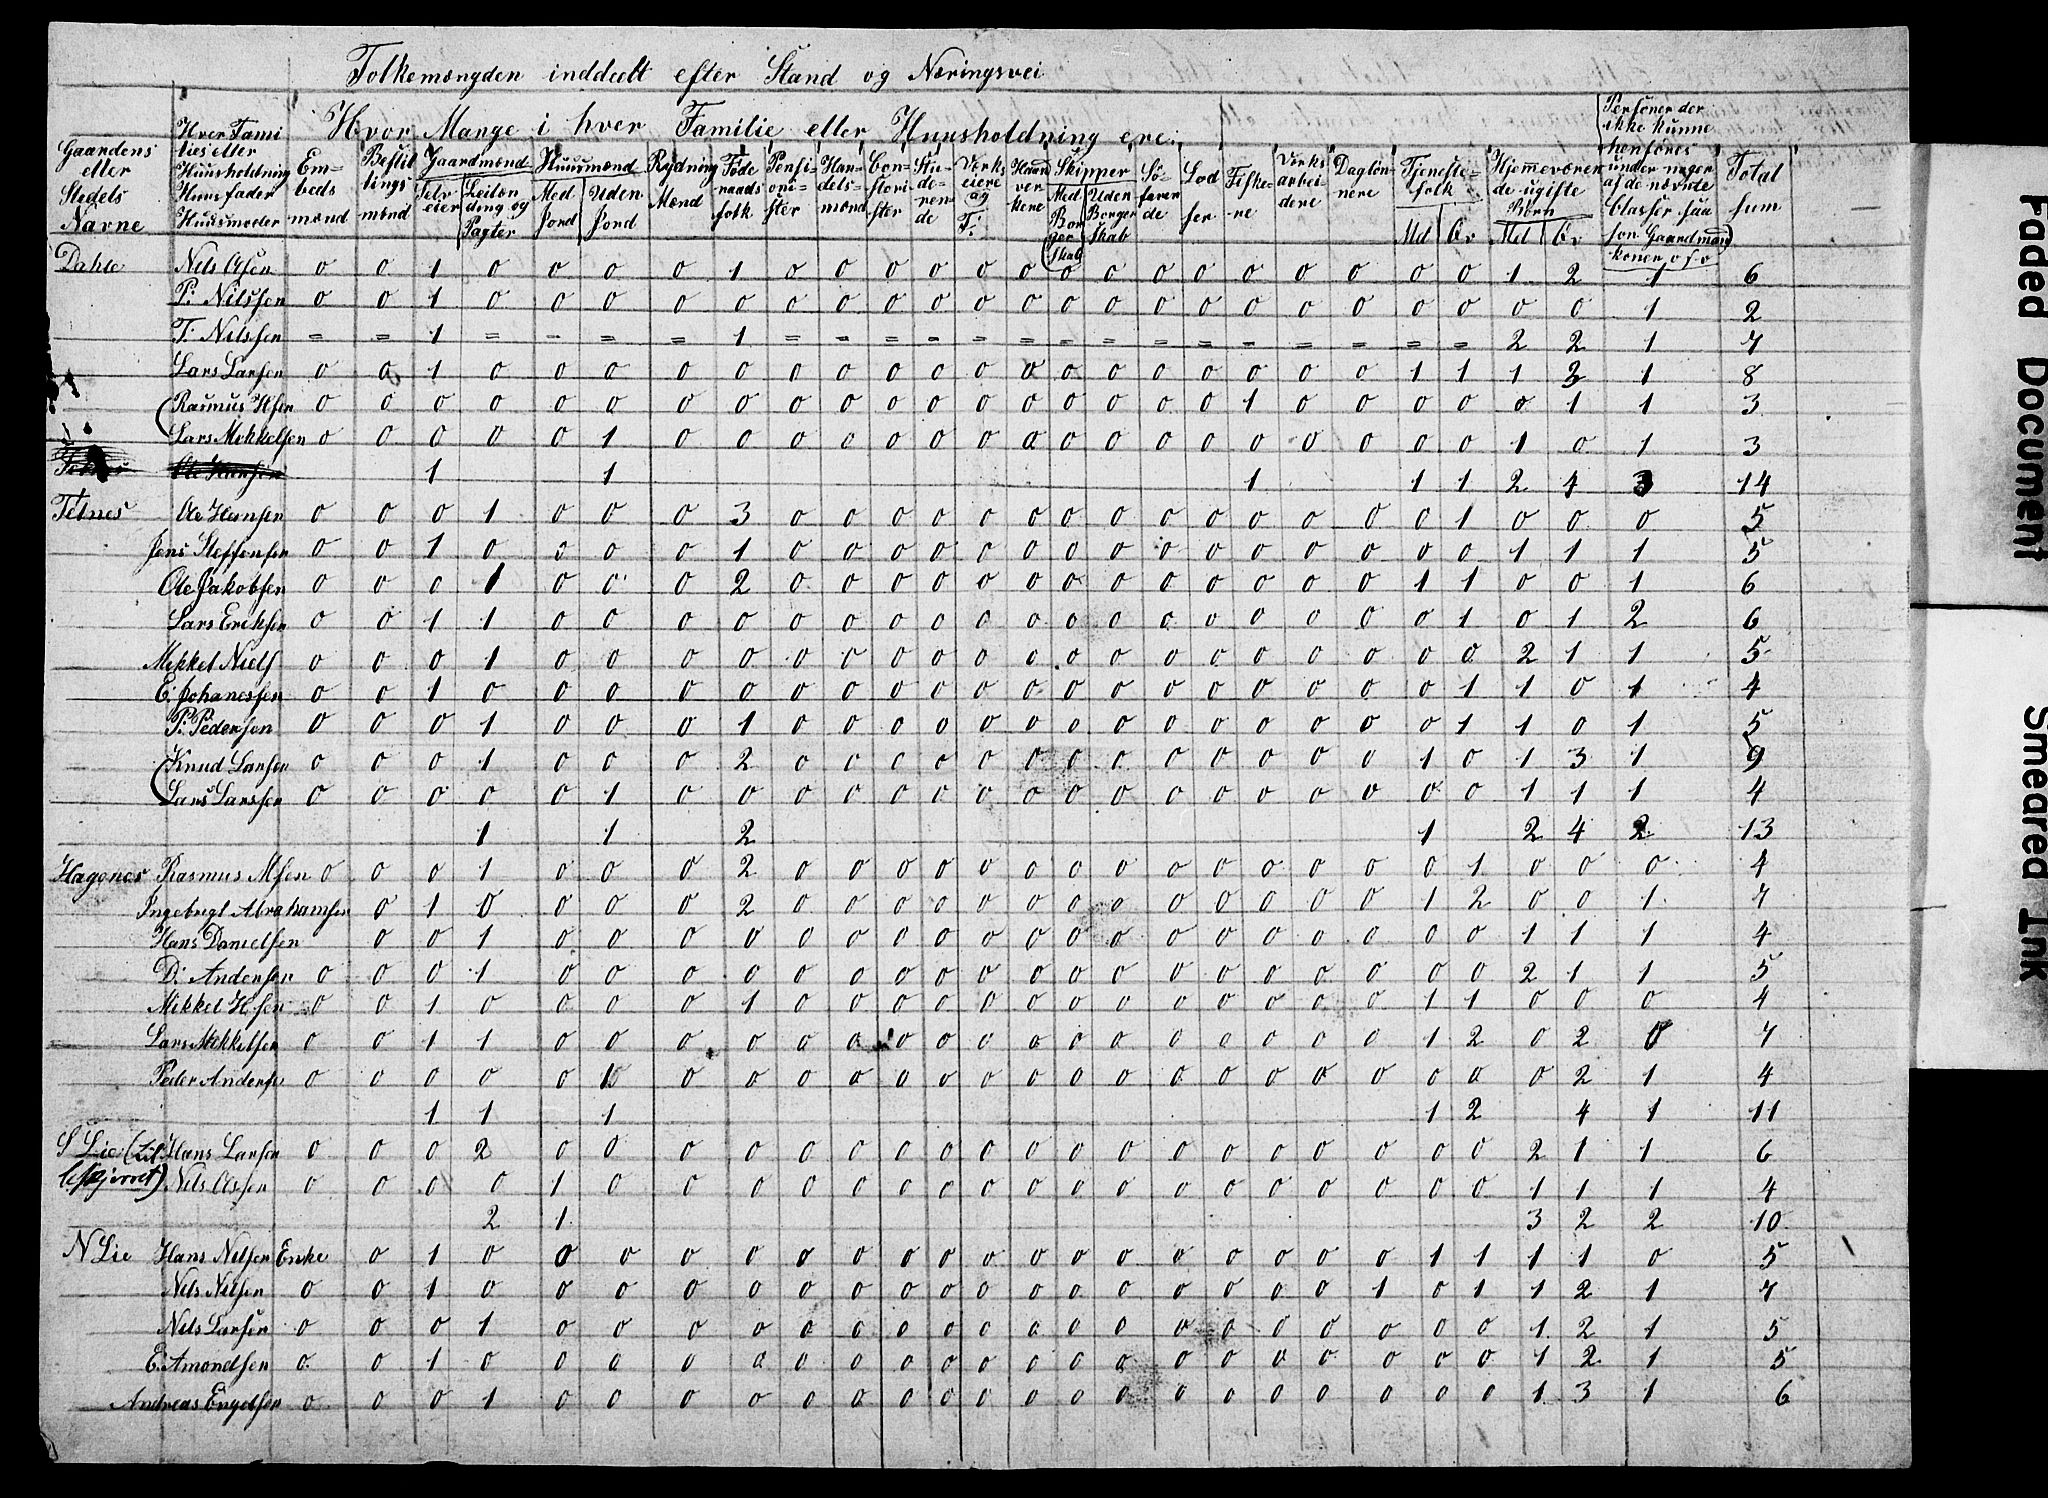 Folkemængden inddeelt efter Stand og Næringsvei
Hvor Mange i hver Familie eller Huusholdning ere:
Gaardens eller Stedets Navne | Hver Families eller Huusholdning Huusfader Huusmoder | Embedsmænd | Bestillingsmænd | Gaardmænd Selveier | Leilænding og Pagter | Huusmænd Med Jord | Uden Jord | Rydningsmænd | Føderaadsfolk | Pensionister | Handelsmænd | Contorister | Studerende | Værkseiere og F: | Haandverkere | Skipper Med Borgerskab | Uden Borgerskab | Søfarende | Lodser | Fiskerne | Verksarbeidere | Daglønnere | Tjenestefolk Md | Qv | Hjemmeværende ugifte Børn Md | Qv | Personer der ikke kunne henføres under nogen af de nævnte Classer saasom Gaardmandkoner o s v | Total sum
Dahle Nils Olsen 0 0 1 0 0 0 0 1 0 0 0 0 0 0 0 0 0 0 0 0 0 0 0 1 2 1 6
P: Nilssen 0 0 1 0 0 0 0 0 0 0 0 0 0 0 0 0 0 0 0 0 0 0 0 0 0 1 2
T: Nilssen = = 1 = = = = 1 = = = = = = = = = = = = = = = 2 2 1 7
Lars Larsen 0 0 1 0 0 0 0 0 0 0 0 0 0 0 0 0 0 0 0 0 0 1 1 1 2 1 8
Rasmus Hsen 0 0 0 0 0 0 0 0 0 0 0 0 0 0 0 0 0 0 1 0 0 0 0 0 1 1 3
Lars Mikkelsen 0 0 0 0 0 1 0 0 0 0 0 0 0 0 0 0 0 0 0 0 0 0 0 1 0 1 3
1 1 1 1 1 2 4 3 14
Tetnes Ole Hansen 0 0 0 1 0 0 0 3 0 0 0 0 0 0 0 0 0 0 0 0 0 0 1 0 0 0 5
Jens Steffensen 0 0 1 0 0 0 0 1 0 0 0 0 0 0 0 0 0 0 0 0 0 0 0 1 1 1 5
Ole Jakobsen 0 0 0 1 0 0 0 2 0 0 0 0 0 0 0 0 0 0 0 0 0 1 1 0 0 1 6
Lars Eriksen 0 0 1 1 0 0 0 0 0 0 0 0 0 0 0 0 0 0 0 0 0 0 1 0 1 2 6
Mikkel Niels 0 0 0 1 0 0 0 0 0 0 0 0 0 0 0 0 0 0 0 0 0 0 0 2 1 1 5
E: Johanessen 0 0 1 0 0 0 0 0 0 0 0 0 0 0 0 0 0 0 0 0 0 0 1 1 0 1 4
P: Pedersen 0 0 0 1 0 0 0 1 0 0 0 0 0 0 0 0 0 0 0 0 0 0 1 1 0 1 5
Knud Larsen 0 0 0 1 0 0 0 2 0 0 0 0 0 0 0 0 0 0 0 0 0 1 0 1 3 1 9
Lars Larssen 0 0 0 0 0 1 0 0 0 0 0 0 0 0 0 0 0 0 0 0 0 0 0 1 1 1 4
1 1 2 1 2 4 2 13
Hagenes Rasmus Msen 0 0 0 1 0 0 0 2 0 0 0 0 0 0 0 0 0 0 0 0 0 0 1 0 0 0 4
Ingebrigt Abrahamsen 0 1 0 0 0 0 2 0 0 0 0 0 0 0 0 0 0 0 0 0 1 2 0 0 1 7
Hans Danielsen 0 0 1 0 0 0 0 0 0 0 0 0 0 0 0 0 0 0 0 0 0 0 1 1 1 4
D: Andersen 0 0 0 1 0 0 0 0 0 0 0 0 0 0 0 0 0 0 0 0 0 0 0 2 1 1 5
Mikkel Hsen 0 0 1 0 0 0 0 1 0 0 0 0 0 0 0 0 0 0 0 0 0 1 1 0 0 0 4
Lars Mikkelsen 0 0 1 1 0 0 0 0 0 0 0 0 0 0 0 0 0 0 0 0 0 1 2 0 2 0 7
Peder Anderse 0 0 0 0 0 1 0 0 0 0 0 0 0 0 0 0 0 0 0 0 0 0 0 0 2 1 4
1 1 1 1 2 4 1 11
S Lie (Lil Hans Larsen 0 0 0 2 0 0 0 0 0 0 0 0 0 0 0 0 0 0 0 0 0 0 0 2 1 1 6
Nils Olssen 0 0 0 0 1 0 0 0 0 0 0 0 0 0 0 0 0 0 0 0 0 0 0 1 1 1 4
2 1 3 2 2 10
N Lie Hans Nilsen Enke 0 1 0 0 0 0 0 0 0 0 0 0 0 0 0 0 0 0 0 0 1 1 1 1 0 5
Nils Nilsen 0 0 1 0 0 0 0 0 0 0 0 0 0 0 0 0 0 0 0 0 1 0 1 1 2 1 7
Nils Larsen 0 0 0 1 0 0 0 0 0 0 0 0 0 0 0 0 0 0 0 0 0 0 0 1 2 1 5
E. Amondsen 0 0 1 0 0 0 0 0 0 0 0 0 0 0 0 0 0 0 0 0 0 0 0 1 2 1 5
Andreas Engelsen 0 0 0 1 0 0 0 0 0 0 0 0 0 0 0 0 0 0 0 0 0 0 0 1 3 1 6
Faded Document
Smeared Ink